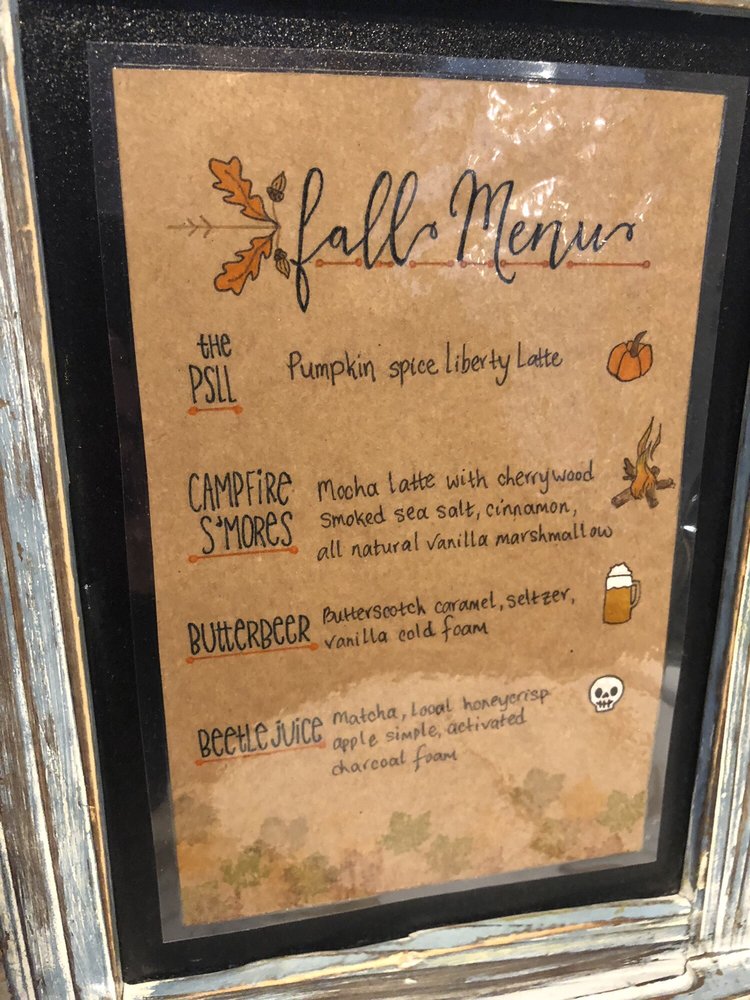 fall Menu
the
PSLL
Pumpkin spice liberty Latte
CAMPFIRE
S'MORES
Mocha latte with cherrywood
smoked sea salt, cinnamon,
all natural vanilla marshmallow
BUTTERBEER
Butterscotch caramel, seltzer,
vanilla cold foam
BEETLEJUICE
Matcha, local honeycrisp
apple simple, activated
charcoal foam